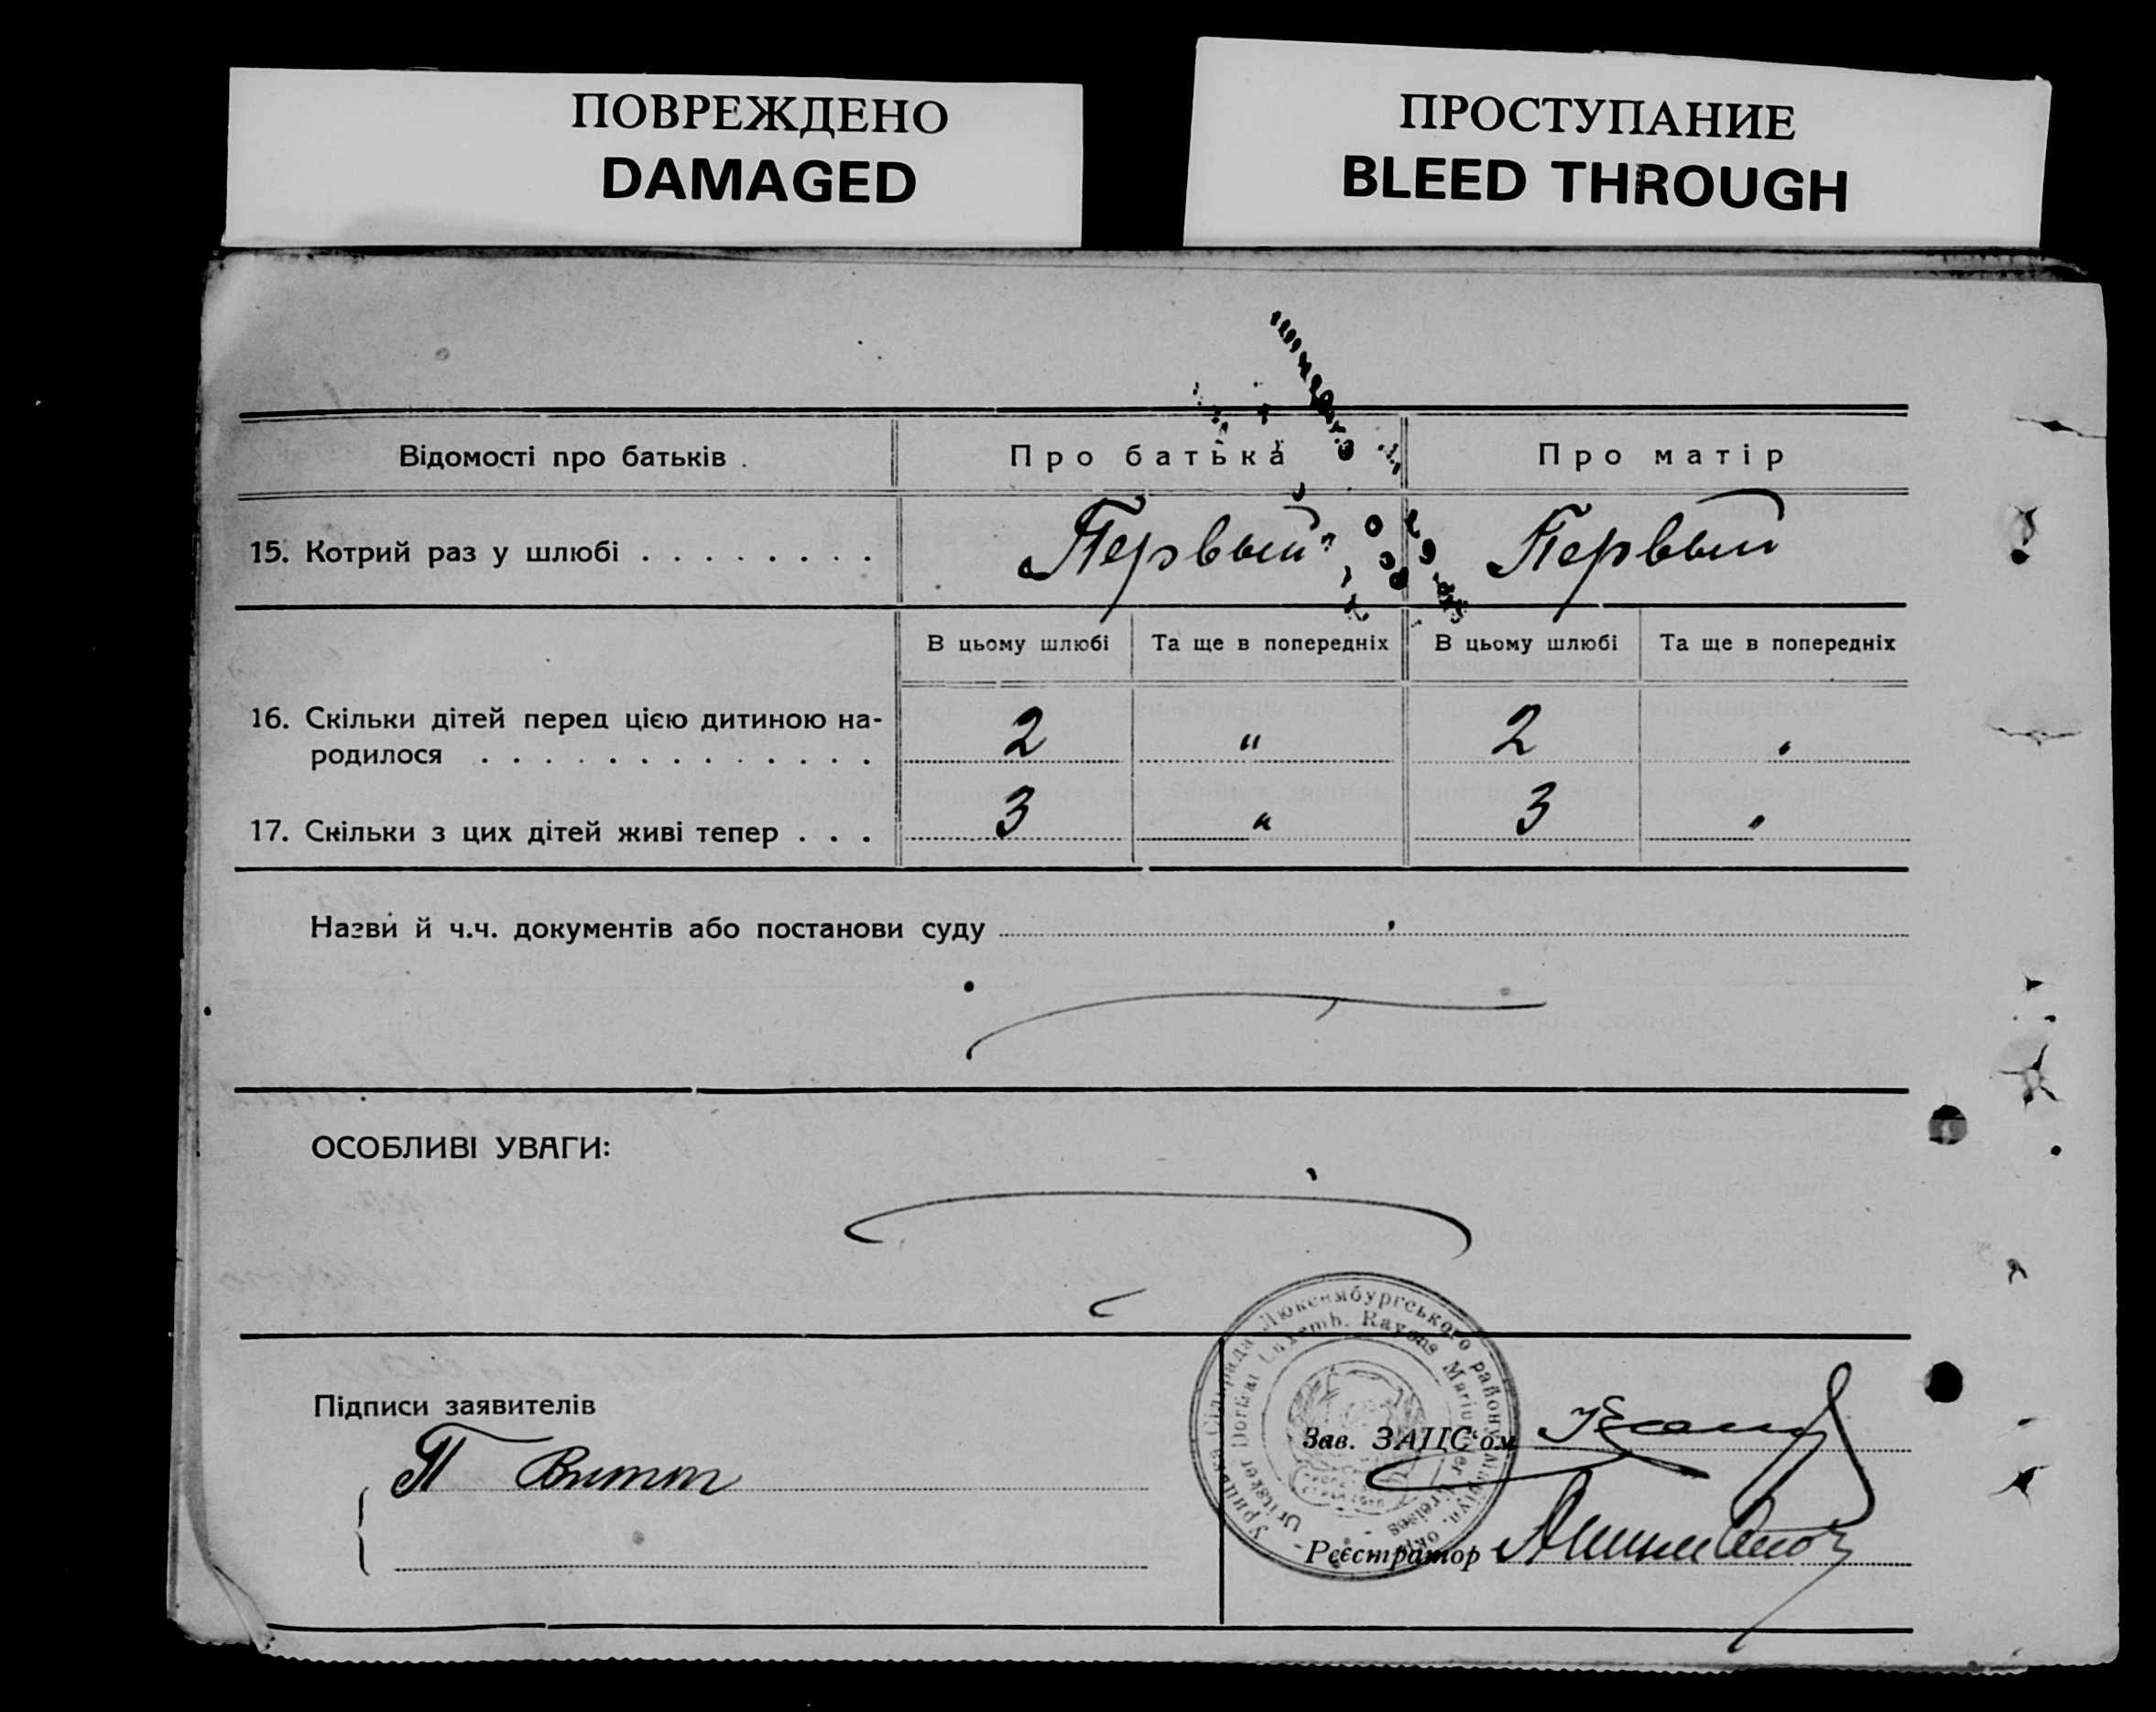 ПОВРЕЖДЕНО
DAMAGED
ПРОСТУПАНИЕ
BLEED THROUGH
Відомості про батьків
Про батька
Про матір
15. Котрий раз у шлюбі . . . . . . . .
Первый
Первый
В цьому шлюбі
Та ще в попередніх
В цьому шлюбі
Та ще в попередніх
16. Скільки дітей перед цією дитиною на-
родилося . . . . . . . . . . . . .
2
"
2
17. Скільки з цих дітей живі тепер . . .
3
"
3
Назви й ч.ч. документів або постанови суду
ОСОБЛИВІ УВАГИ:
Підписи заявителів
П Витт
Урицька Сільрада Люксембургського району Маріуп. окр.
Uritsker Dorfrat Luxemb. Rayons Mariupoler Kreises
Зав. ЗАЦС'ом
Реєстратор